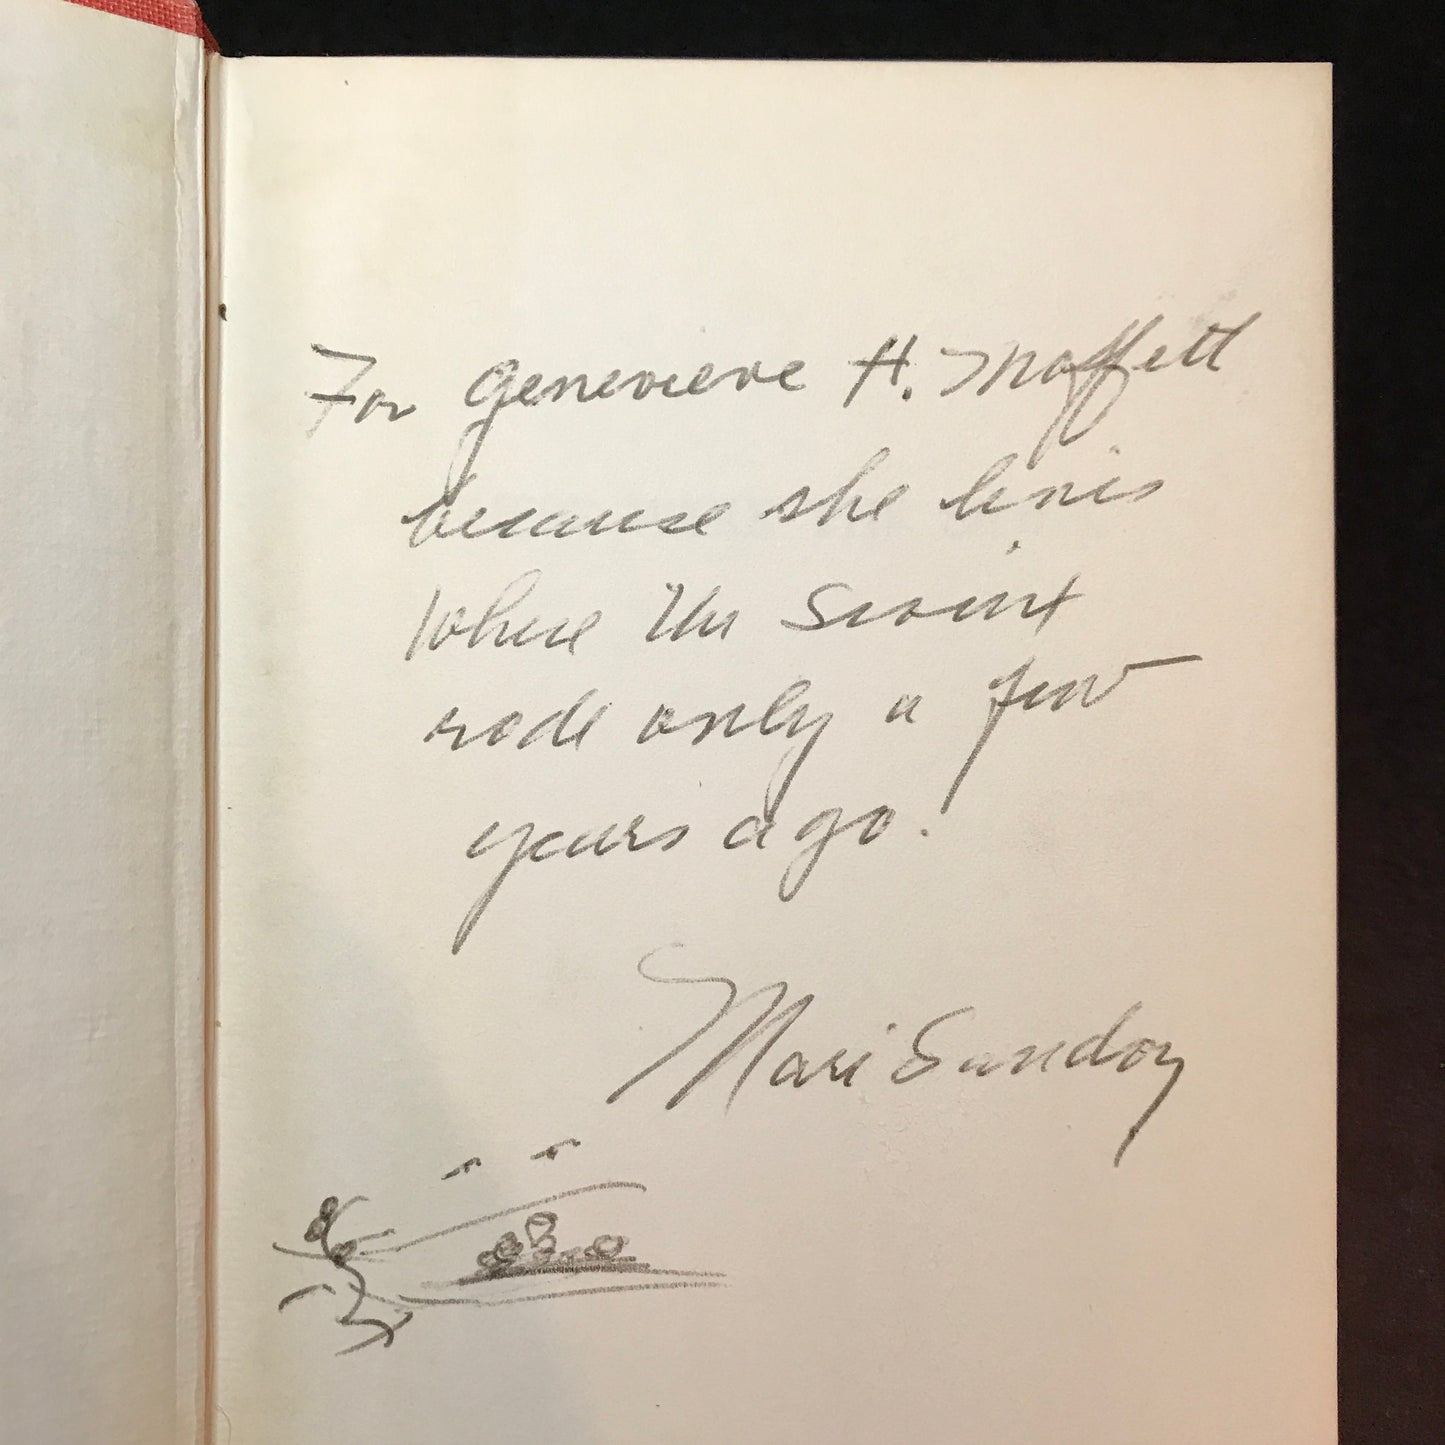 For Genevieve H. Moffett
because she lives
where the Sioux
rode only a few
years ago.
Mari Sandoz